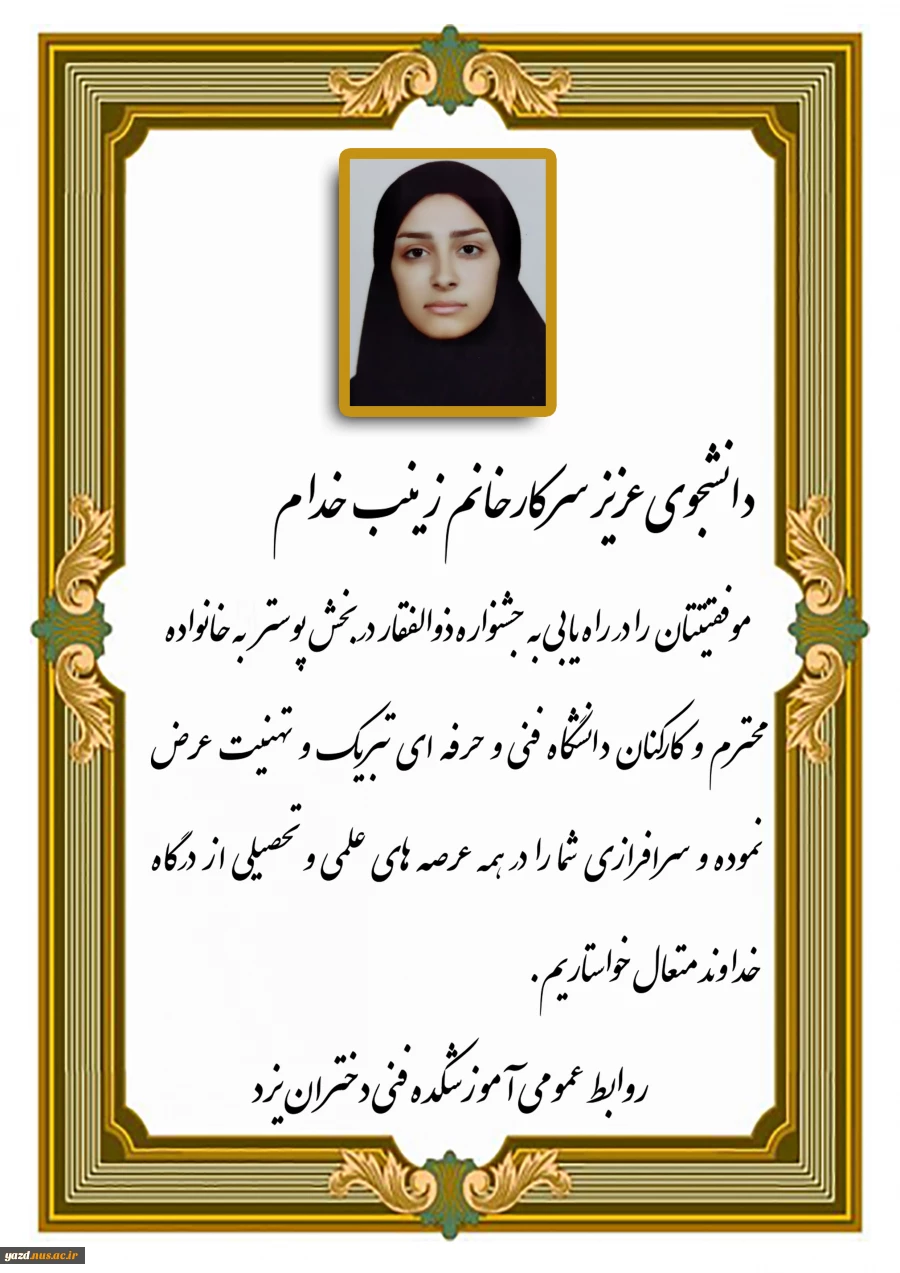 دانشجوی عزیز سرکار خانم زینب خدام
موفقیتتان را در راه یابی به جشنواره ذوالفقار در بخش پوستر به خانواده
محترم و کارکنان دانشگاه فنی و حرفه ای تبریک و تهنیت عرض
نموده و سرافرازی شما را در همه عرصه های علمی و تحصیلی از درگاه
خداوند متعال خواستاریم.
روابط عمومی آموزشکده فنی دختران یزد
yazd.nus.ac.ir